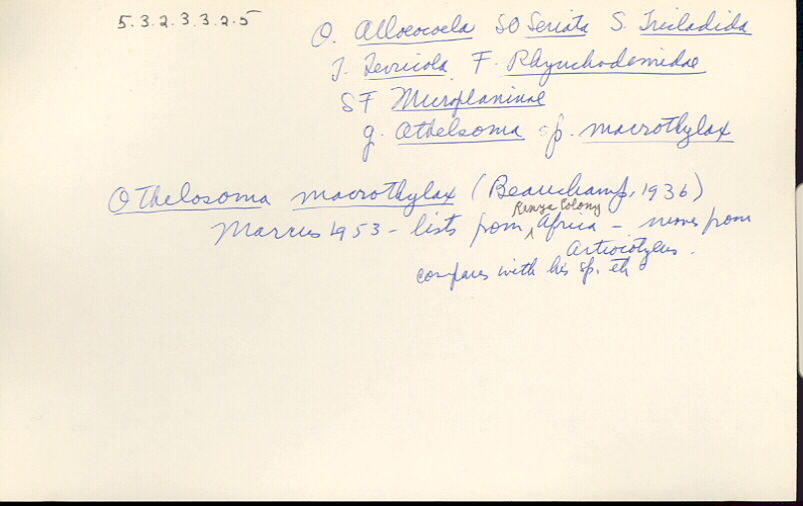 5.3.2.3.3.2.5
O. Alloeocoela SO Seriata S. Tricladida
T. Terricola F. Rhynchodemidae
SF Microplaninae
g. Othelsoma sp. macrothylax
Othelosoma macrothylax (Beauchamp, 1936)
Kenya Colony
Marcus 1953 - lists from ^ Africa - moves from
Artiocotylus.
compares with his sp. etc